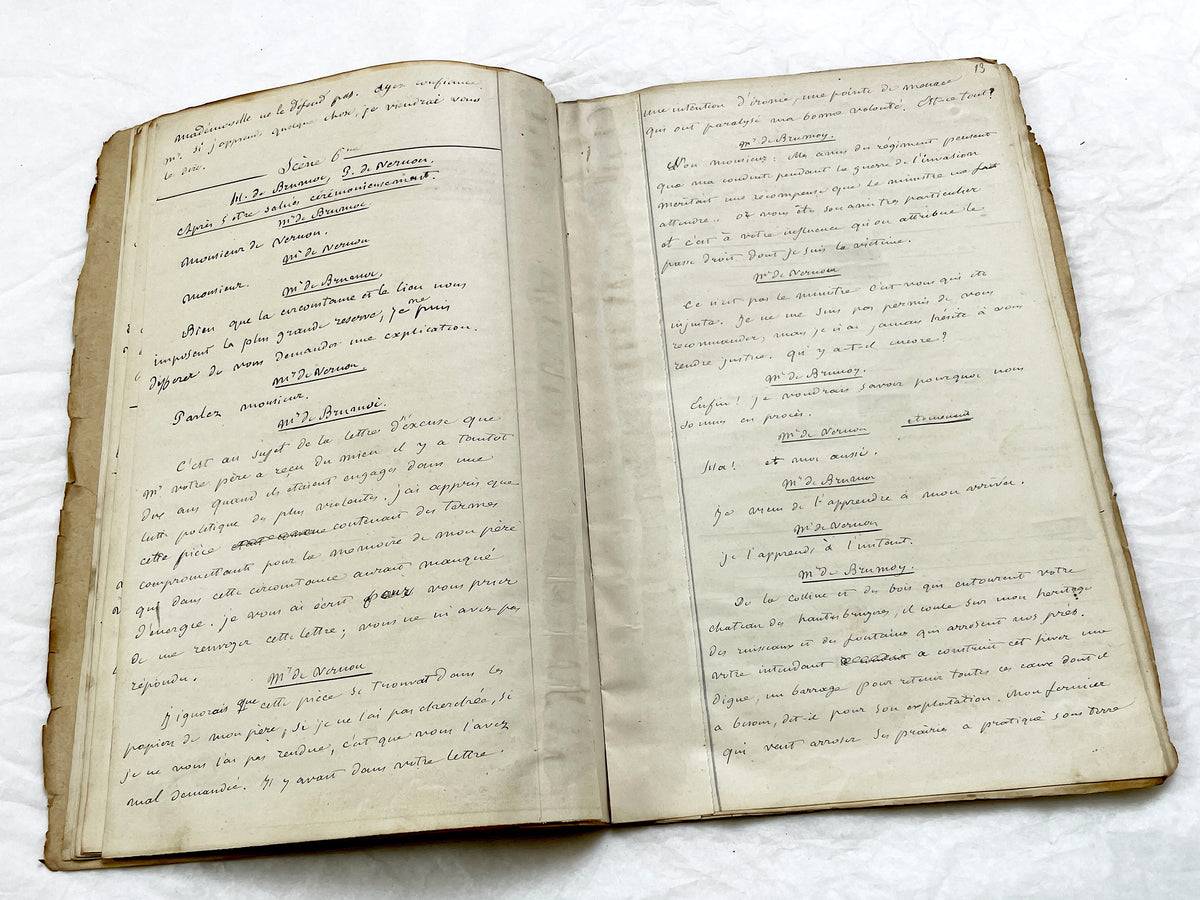 Mademoiselle ne le défend pas. Ayez confiance
Mr. Si j'apprends quelque chose, je viendrai vous
le dire.
Scène 6me
M. de Brumoi, P. de Vernon.
Après s'être salués cérémonieusement.
Mr de Brumoi
Monsieur de Vernon.
Mr de Vernon
Monsieur.
Mr de Brumoi,
Bien que la circonstance et le lieu nous
imposent la plus grande reserve, je ne puis
differer de vous demander une explication.
Mr de Vernon,
Parlez monsieur.
Mr de Brumoi
C'est au sujet de la lettre d'excuse que
Mr votre père a reçu du mien il y a tantôt
dix ans quand ils étaient engagés dans une
lutte politique des plus violentes. j'ai appris que
cette pièce contenait des termes
compromettants pour la mémoire de mon père
qui dans cette circonstance aurait manqué
d'énergie. je vous ai écrit pour vous prier
de me renvoyer cette lettre; vous ne m'avez pas
répondu.
Mr de Vernon
J'ignorais que cette pièce se trouvat dans les
papiers de mon père, si je ne l'ai pas cherchée, si
je ne vous l'ai pas rendue, c'est que vous l'avez
mal demandée. Il y avait dans votre lettre
13
une intention d'ironie, une pointe de menace
qui ont paralysé ma bonne volonté. Est-ce tout?
Mr de Brumoy.
Non monsieur: Mes amis du régiment pensent
que ma conduite pendant la guerre de l'invasion
méritait une récompense que le ministre me fait
attendre.. or vous êtes son ami très particulier
et c'est à votre influence qu'on attribue le
passe droit dont je suis la victime.
Mr de Vernon
Ce n'est pas le ministre c'est vous qui êtes
injuste. Je ne me suis pas permis de vous
recommander, mais je n'ai jamais hésité à vous
rendre justice. qu'y a-t-il encore?
Mr de Brumoy.
Enfin! je voudrais savoir pourquoi nous
sommes en procès.
Mr de Vernon étonnement
Ha! et moi aussi.
Mr de Brumoi
Je viens de l'apprendre à mon arrivée.
Mr de Vernon
je l'apprends à l'instant.
Mr de Brumoy.
De la colline et des bois qui entourent votre
chateau des hautes bruyeres, il coule sur mon heritage
des ruisseaux et des fontaines qui arrosent mes prés.
votre intendant a construit cet hiver une
digue, un barrage pour retenir toutes ces eaux dont il
a besoin, dit-il pour son exploitation. Mon fermier
qui veut arroser ses prairies a pratiqué sous terre